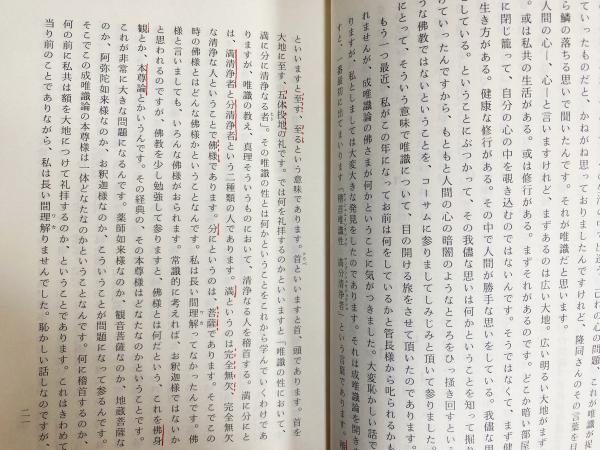 己れの心の問題、これが唯識が捉
ていったのだと、かねがね思っておりましたんですけれど、隆同さんのその言葉を目
ら鱗の落ちる思いで聞いたんです。それが唯識だと思います。
人間の心ー、心ーと言いますけれど、まずあるのは広い大地。広い明るい大地がまず
或は私共の生活がある。或は修行がある。まずそれがあるのです。どこか暗い部屋
に閉じ籠って、自分の心の中を覗き込むのではないんです。そうではなくて、まず健
生き方がある。健康な修行がある。その中で人間が勝手な思いをしている。我儘な思
している。ということにぶつかって、その我儘な思いは何かということを知って掘り
ていったんですから、もともと人間の心の暗闇のようなところをひっ掻き回すとい
ような佛教ではないんだということを、コーサムに参りましてしみじみと頂いて参りました。
にとって、そういう意味で唯識について、目の開ける旅をさせて頂いたのであります。
もう一つ最近、私がこの年になってお前は何をしているかと管長様から叱られるかも
れませんが、成唯識論の佛さまが何かということに気がつきました。大変恥かしい話で
りますが、私としましては大変大きな発見をしたのであります。それは成唯識論を開きま
すと、一番最初に出てまいります「稽首唯識性　満分清浄者」という言葉であります。稽
といいますと至す、至るという意味であります。首といいますと首、頭であります。首を
大地に至す、五体投地の礼です。では何を礼拝するのかといいますと「唯識の性において、
満に分に清浄なる者」。その唯識の性とは何かということをこれから学んでいくわけであ
りますが、唯識の教え、真理そういうものにおいて、清浄なる人を稽首する。満に分にと
は、満清浄者と分清浄者という二種類の人であります。満というのは完全無欠、完全無欠
な清浄な人ということで佛様であります。分にというのは、菩薩であります。そこでこの
時の佛様とはどんな佛様かということなんです。私は長い間理解ってなかったんです。佛
様と言いましても、いろんな佛様がおられます。常識的に考えれば、お釈迦様ではないか
と思われるのですが、佛教を少し勉強して参りますと、佛様とは何だという、これを佛身
観とか、本尊論とかいうんです。その経典の、その本尊様はどなたなのかということです。
これが非常に大きな問題になるんです。薬師如来様なのか、観音菩薩なのか、地蔵菩薩な
のか、阿弥陀如来様なのか、お釈迦様なのか、こういうことが問題になって参るんです。
そこでこの成唯識論の本尊様は一体どなたなのかということなんです。何に稽首するのか、
何の前に私共は額を大地につけて礼拝するのか、ということであります。これはきわめて
当り前のことでありながら、私は長い間理解りませんでした。恥かしい話しなのですが、
二一